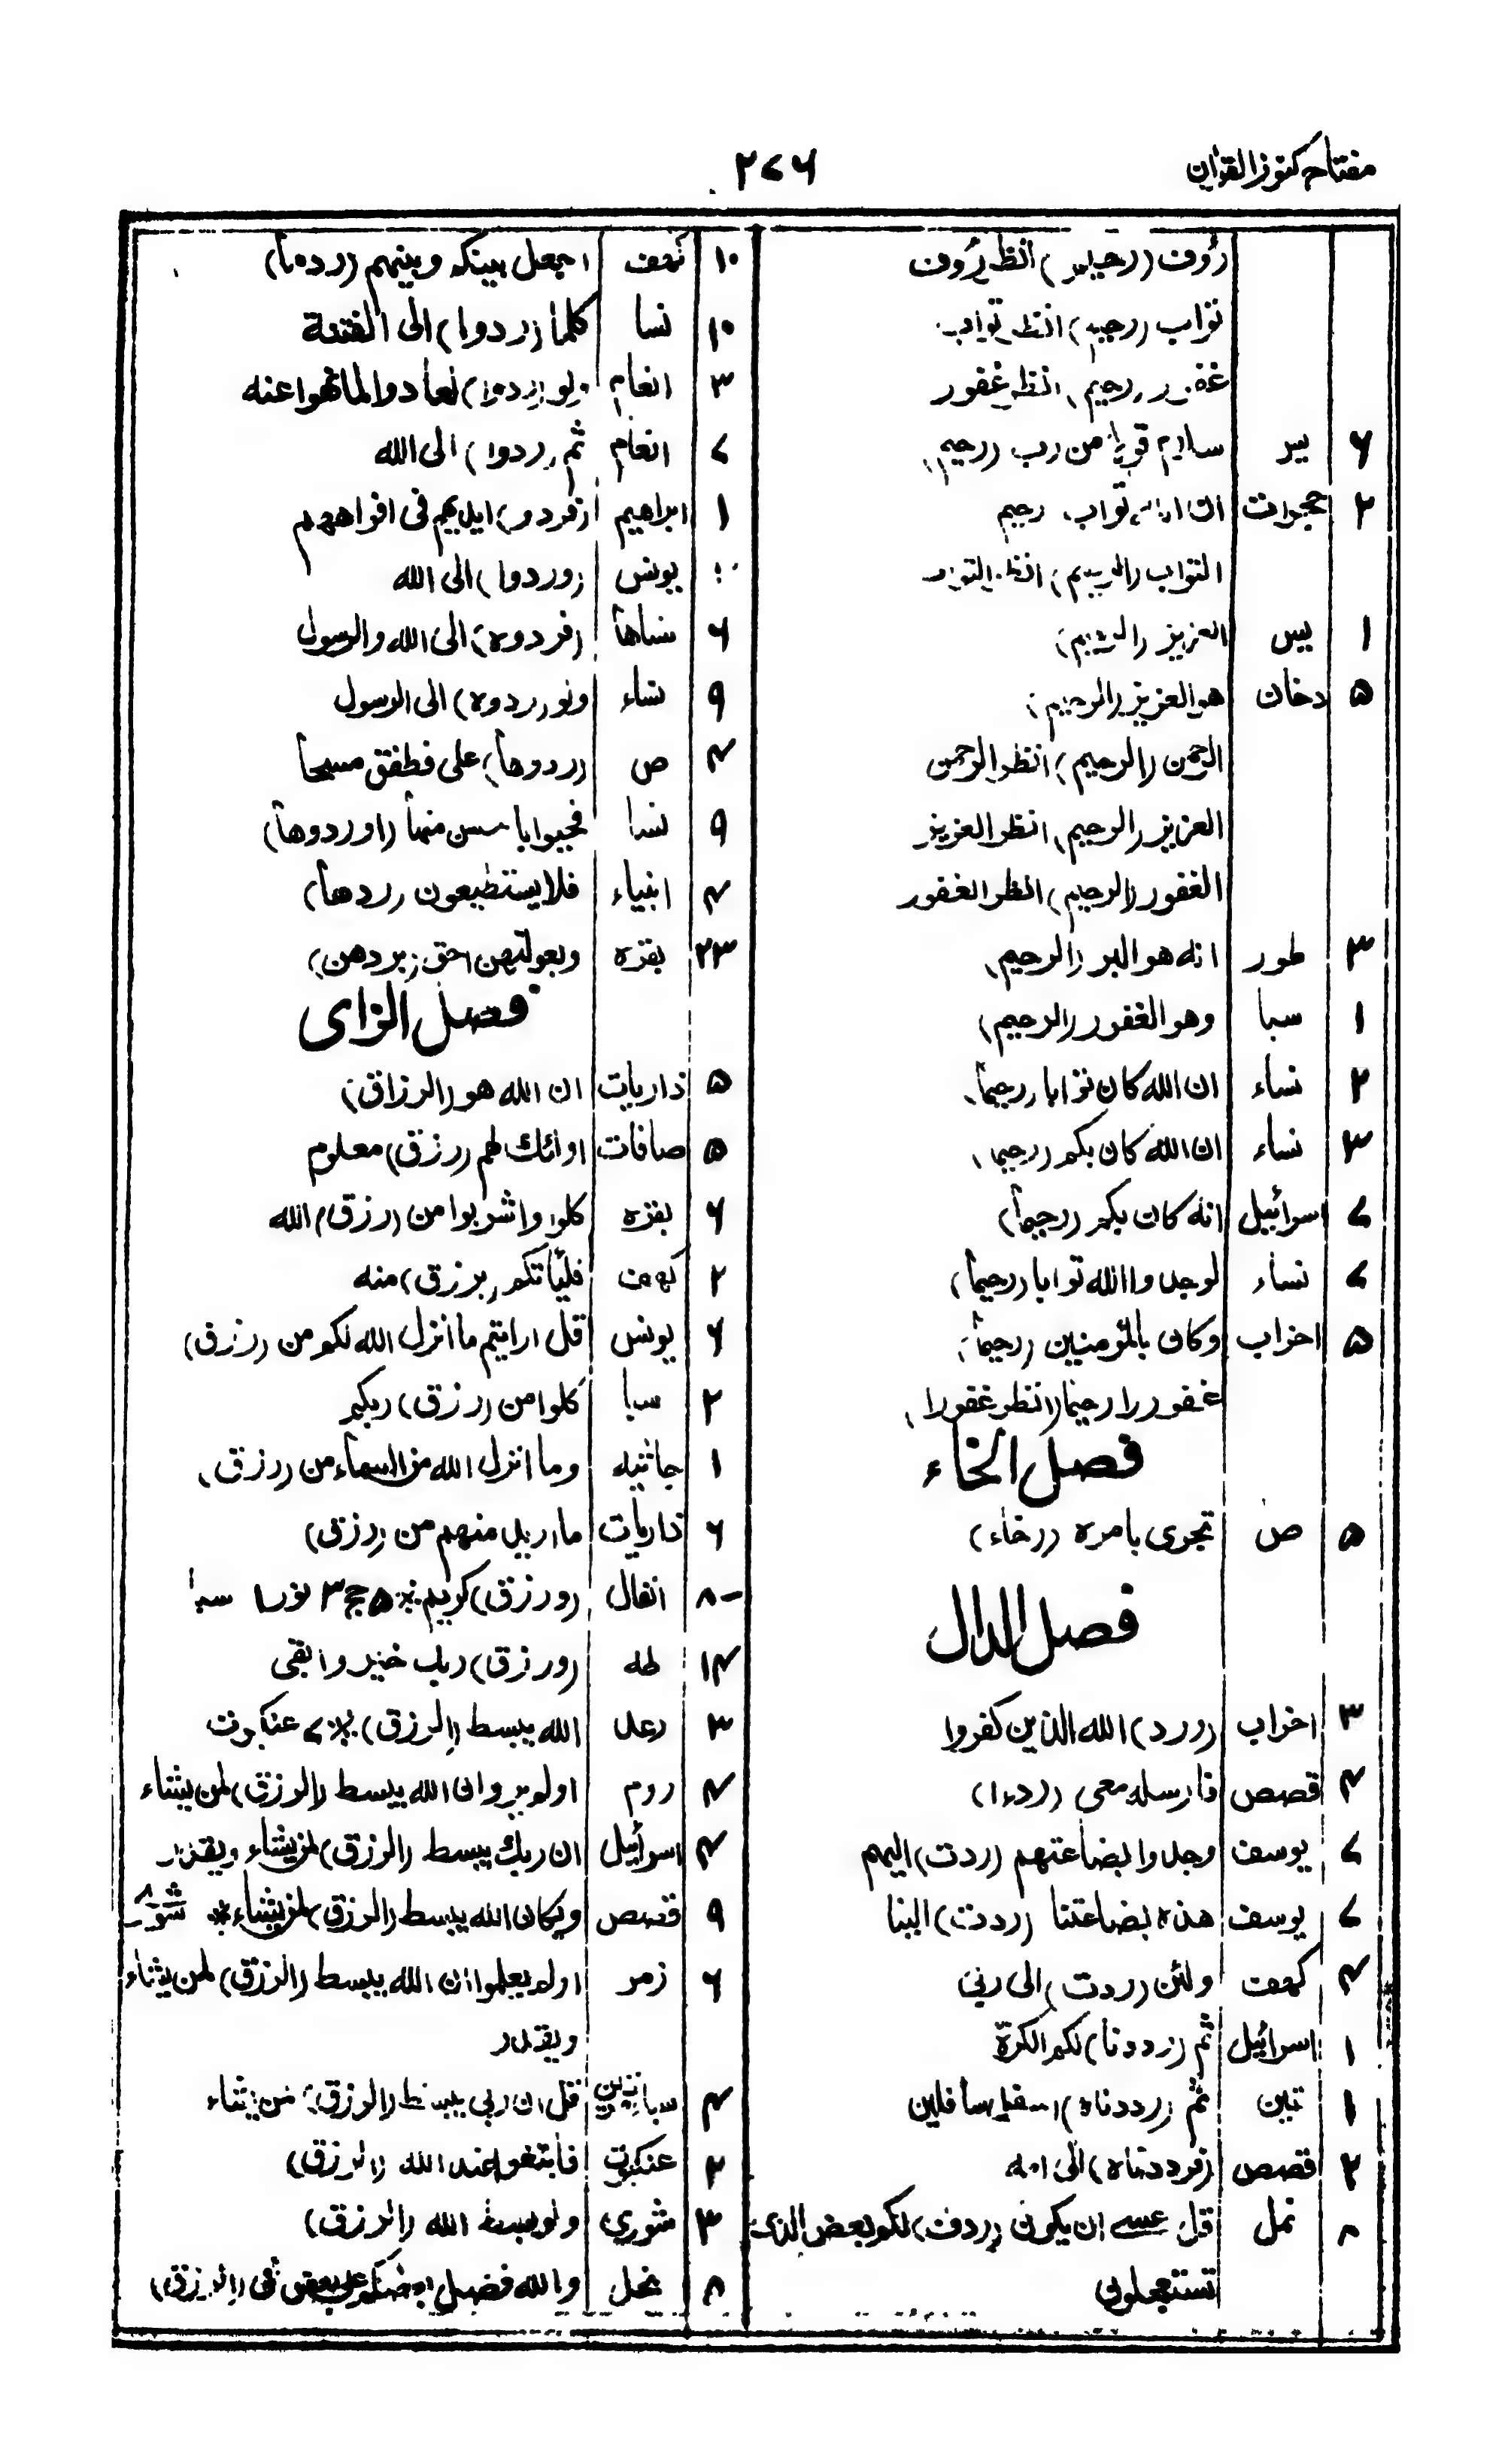 مفتاح كنوز القرآن
٢٧٦
رؤف (رحيم) انظر رؤف
تواب (رحيم) انظر تواب
غفور رحيم، انظر غفور
٦ يس سلام قولا من رب (رحيم)
٢ حجرات ان الله تواب رحيم
التواب (الرحيم) انظر التواب
١ يس العزيز (الرحيم)
٥ دخان هو العزيز (الرحيم)
الرحمن (الرحيم) انظر الرحمن
العزيز (الرحيم) انظر العزيز
الغفور (الرحيم) انظر الغفور
٣ طور انه هو البر (الرحيم)
١ سبا وهو الغفور (الرحيم)
٢ نساء ان الله كان توابا (رحيما)
٣ نساء ان الله كان بكم (رحيما)
٧ اسرائيل انه كان بكم (رحيما)
٧ نساء لوجدوا الله توابا (رحيما)
٥ احزاب وكان بالمؤمنين (رحيما)
غفورا رحيما (انظر غفورا)
فصل الخاء
٥ ص تجرى بامره (رخاء)
فصل الدال
٣ احزاب (ورد) الله الذين كفروا
٤ قصص فارسله معى (ردءا)
٧ يوسف وجدوا بضاعتهم (ردت) اليهم
٧ يوسف هذه بضاعتنا (ردت) الينا
٤ كهف ولئن (ردت) الى ربي
١ اسرائيل ثم (رددنا) لكم الكرة
١ تين ثم (رددناه) اسفل سافلين
٢ قصص (فرددناه) الى امه
٨ نمل قل عسى ان يكون (ردف) لكم بعض الذى
تستعجلون
١٠ كهف اجعل بينكم وبينهم (ردما)
١٠ نسا كلما (ردوا) الى الفتنة
٣ انعام ولو (ردوا) لعادوا لما نهوا عنه
٧ انعام ثم (ردوا) الى الله
١ ابراهيم (فردوا) ايديهم فى افواههم
يونس (وردوا) الى الله
٦ نساها (فردوه) الى الله والرسول
٩ نساء ولو (ردوه) الى الرسول
٤ ص (ردوها) على فطفق مسحا
٩ نسا فحيوا باحسن منها (او ردوها)
٤ انبياء فلا يستطيعون (ردها)
٢٣ بقره وبعولتهن احق (بردهن)
فصل الزاى
٥ ذاريات ان الله هو (الرزاق)
٥ صافات اولئك لهم (رزق) معلوم
٦ بقره كلوا واشربوا من (رزق) الله
٢ كهف فليأتكم (برزق) منه
٦ يونس قل ارايتم ما انزل الله لكم من (رزق)
٢ سبا كلوا من (رزق) ربكم
١ جاثيه وما انزل الله من السماء من (رزق)
٦ ذاريات ما اريد منهم من (رزق)
٨ انفال (ورزق) كريم * ٥ حج ٣ نور ١ سبا
١٤ طه (ورزق) ربك خير وابقى
٣ رعد الله يبسط (الرزق) * ٧ عنكبوت
٤ روم اولم يروا ان الله يبسط (الرزق) لمن يشاء
٤ اسرائيل ان ربك يبسط (الرزق) لمن يشاء ويقدر
٩ قصص ويكان الله يبسط (الرزق) لمن يشاء *
٦ زمر اولم يعلموا ان الله يبسط (الرزق) لمن يشاء
ويقدر
٤ سبا قل ان ربي يبسط (الرزق) لمن يشاء
٢ عنكبوت فابتغوا عند الله (الرزق)
٣ شورى ولو بسط الله (الرزق)
٨ نحل والله فضل بعضكم على بعض فى (الرزق)